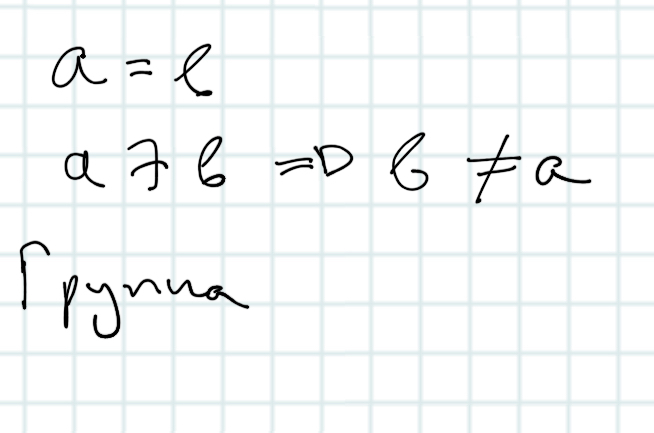 a = e
a ≠ b => b ≠ a
Группа